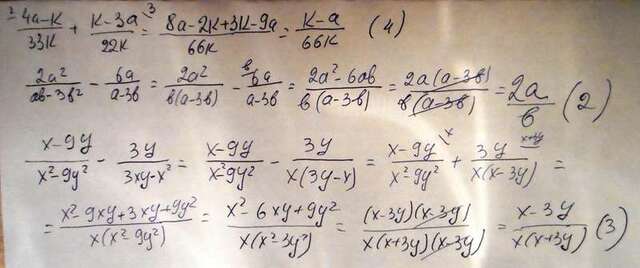 ² 4a-к/33к + к-3а/22к ³ = 8а-2к+3к-9а/66к = к-а/66к (4)
2a²/ab-3b² - 6a/a-3b = 2a²/b(a-3b) - ᵇ6a/a-3b = 2a²-6ab/b(a-3b) = 2a(a-3b)/b(a-3b) = 2a/b (2)
x-9y/x²-9y² - 3y/3xy-x² = x-9y/x²-9y² - 3y/x(3y-x) = x-9y ˣ/x²-9y² + 3y ˣ⁺³ʸ/x(x-3y) =
= x²-9xy+3xy+9y²/x(x²-9y²) = x²-6xy+9y²/x(x²-3y²) = (x-3y)(x-3y)/x(x+3y)(x-3y) = x-3y/x(x+3y) (3)